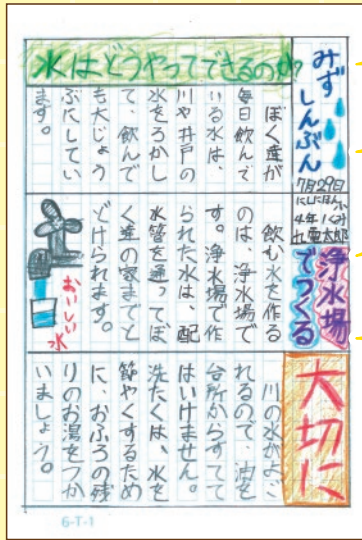 みずしんぶん
7月29日
にしにほん小
4年1くみ
九電太郎
水はどうやってできるのか
ぼく達が
毎日飲んで
いる水は、
川や井戸の
水をろかし
て、飲んで
も大じょう
ぶにしてい
ます。
浄水場
でつくる
飲む水を作る
のは、浄水場で
す。浄水場で作
られた水は、配
水管を通ってぼ
く達の家までと
どけられます。
おいしい
水
大切に
川の水がよご
れるので、油を
台所からすてて
はいけません。
洗たくは、水を
節やくするため
に、おふろの残
りのお湯をつか
いましょう。
6-T-1